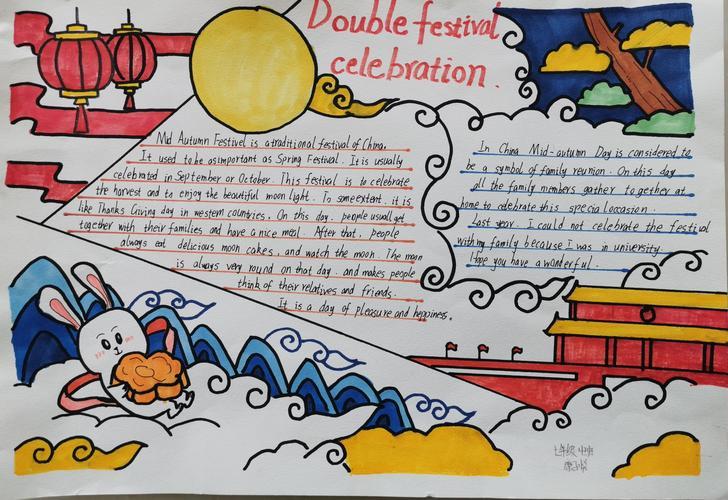 Double festival
celebration.
Mid Autumn Festivel is a traditional festival of China.
It used to be as important as Spring Festival. It is usually
celebrated in September or October. This festival is to celebrate
the harvest and to enjoy the beautiful moon light. To some extent, it is
like Thanks Giving day in western countries. On this day, people usuall get
together with their families and have a nice meal. After that, people
always eat delicious moon cakes, and watch the moon. The moon
is always very round on that day. and makes people
think of their relatives and friends.
It is a day of pleasure and heppiness.
In China Mid-autumn Day is considered to
be a symbol of family reunion. On this day
all the family members gather together at
home to celebrate this special occasion.
Last year. I could not celebrate the festival
with my family because I was in university.
Hope you have a wonderful.
七年级